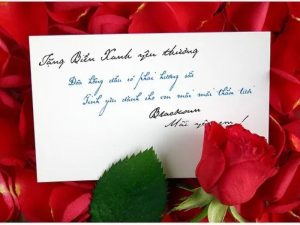 Tặng Biển Xanh yêu thương
Đóa hồng đâu có phai hương sắc
Tình yêu dành cho em mãi mãi thắm tươi
Blacksun
Mãi yêu em!